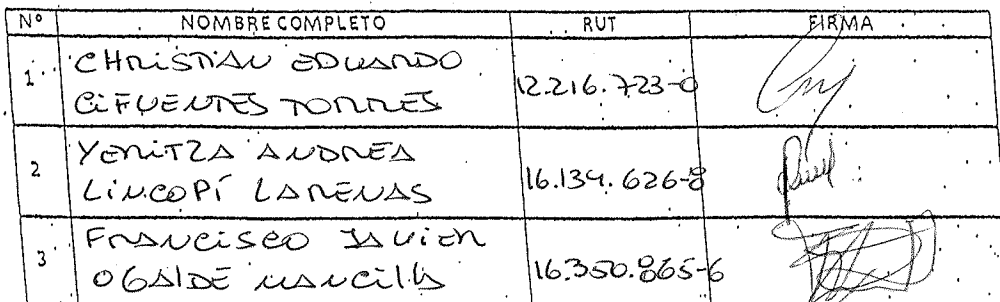 Nº NOMBRE COMPLETO RUT FIRMA
1 CHRISTIAN EDUARDO
CIFUENTES TORRES 12.216.723-0
2 YERITZA ANDREA
LINCOPÍ LARENAS 16.134.626-8
3 FRANCISCO JAVIER
OGALDE MANCILLA 16.350.865-6